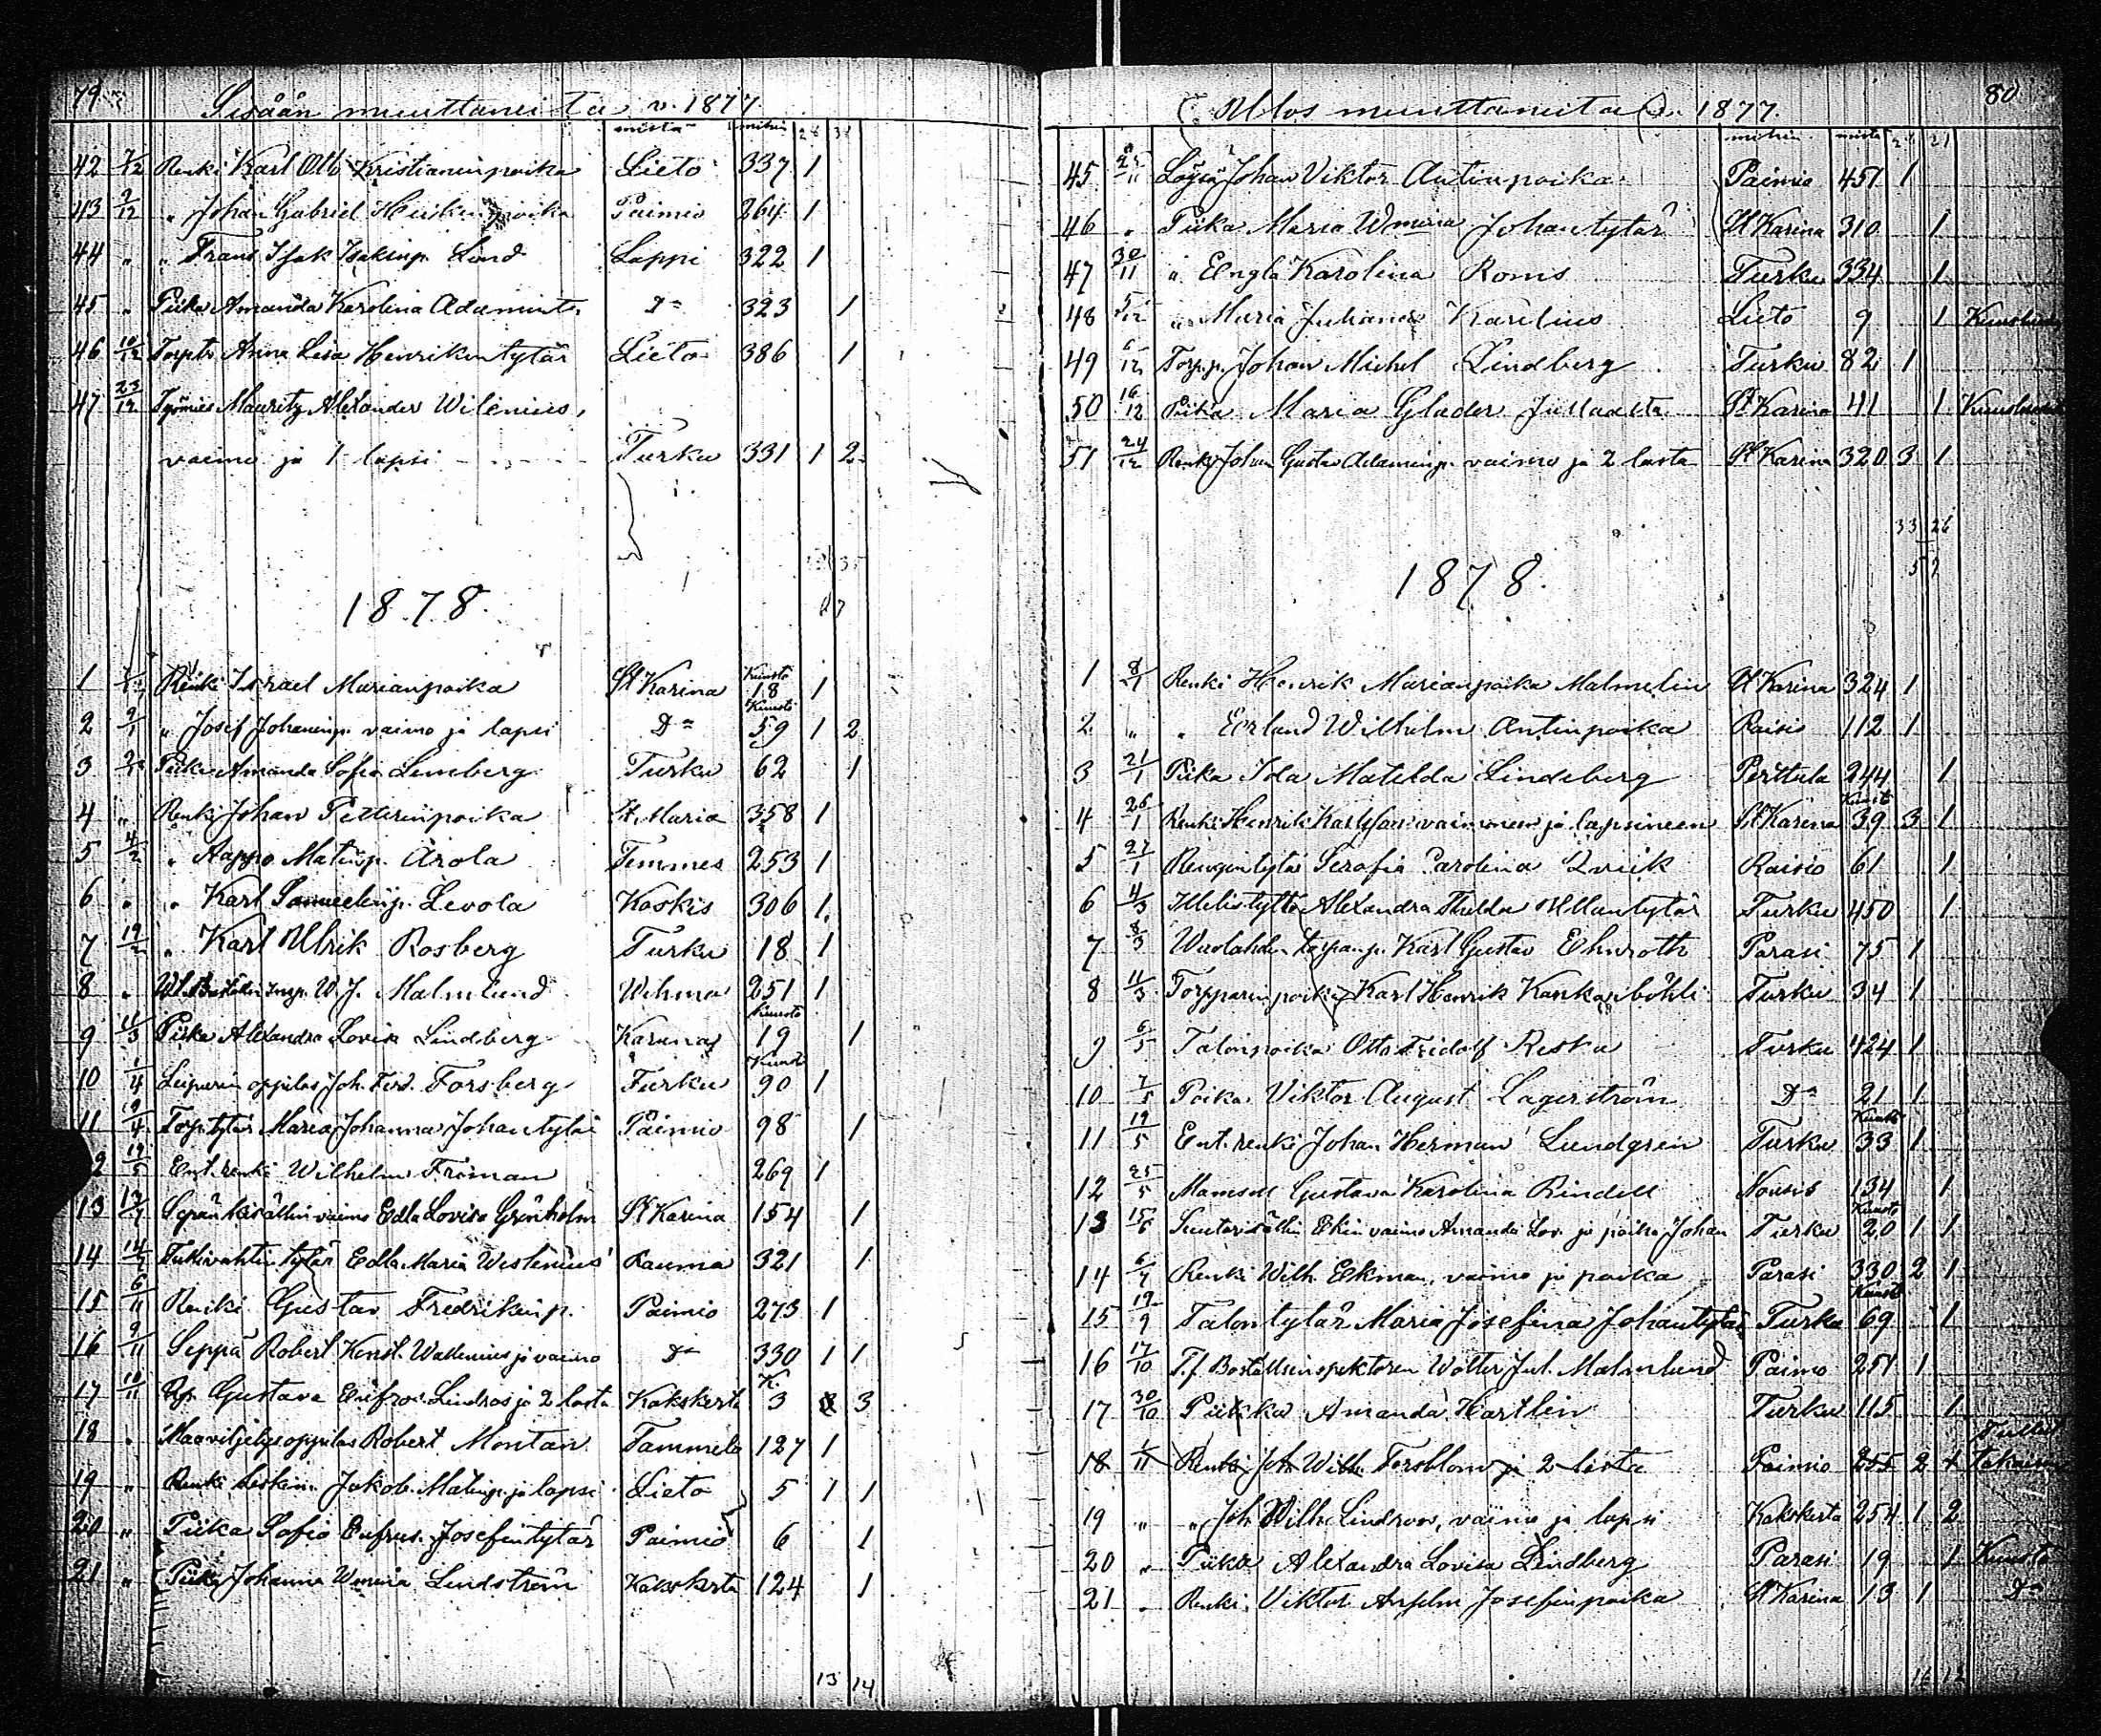 79
Sisään muuttaneista v. 1877.
mistä mihin 28 38
42 7/12 Renki Karl Otto Kristianinpoika Lieto 337 1
43 9/12 „ Johan Gabriel Heikinpoika Paimio 264 1
44 „ „ Frans Isak Isakinp. Lind Lappi 322 1
45 „ Piika Amanda Karolina Adamint. Do 323 1
46 10/12 Torptr Anna Lisa Henrikintytär Lieto 386 1
47 23/12 Työmies Mauritz Alexander Wilenius,
vaimo ja 1 lapsi Turku 331 1 2
1878.
1 Renki Israel Marianpoika St Karina Kuusto 18 1
2 9/1 „ Josef Johaninp. vaimo ja lapsi Do Kuusto 59 1 2
3 Piika Amanda Sofia Lemberg Turku 62 1
4 „ Renki Johan Petterinpoika St. Maria 358 1
5 4/2 „ Aappo Matinp. Arola Temmes 253 1
6 „ „ Karl Samuelinp. Levola Koskis 306 1
7 19/2 „ Karl Ulrik Rosberg Turku 18 1
8 „ Insp. W. J. Malmlund Wihmo 251 1
9 11/3 Piika Alexandra Lovisa Lindberg Karuna Kuusto 19 1
10 1/4 Leipurin oppilas Joh. Ferd. Forsberg Turku Kuusto 90 1
11 19/4 Torp.tytär Maria Johanna Johantytär Paimio 98 1
2 19/5 Ent. renki Wilhelm Friman 269 1
13 13/7 Sepän kisällin vaimo Edla Lovisa Grönholm St Karina 154 1
14 14/7 Tullivahtin tytär Edla Maria Westenius Rauma 321 1
15 6/11 Renki Gustav Fredrikinp. Paimio 273 1
16 9/11 Seppä Robert Konst. Wallenius ja vaimo Do 330 1 1
17 10/11 Gustava Eufros. Lindros ja 2 lasta Kakskerta K. 3 3
18 „ Maaviljelysoppilas Robert Montan Tammela 127 1
19 „ Renki leskim. Jakob Matinp. ja lapsi Lieto 5 1 1
20 „ Piika Sofia Eufros. Josefintytär Paimio 6 1
21 „ Piika Johanna Wmina Lindström Kakskerta 124 1
13 14
80
Ulos muuttaneista v. 1877.
mihin mistä 21
45 25/11 Johan Viktor Antinpoika Paimio 451 1
46 „ Piika Maria Wmina Johantytär St Karina 310 1
47 30/11 „ Engla Karolina Roms Turku 334 1
48 5/12 „ Maria Juliana Karelius Lieto 9 1
49 6/12 Torp.p. Johan Michel Lindberg Turku 82 1
50 16/12 Piika Maria Glader St Karina 41 1
51 24/12 Renki Johan Gustav Adaminp. vaimo ja 2 lasta St Karina 320 3 1
33 26
1878.
1 8/1 Renki Henrik Marianpoika Malmelin St Karina 324 1
2 „ „ Erland Wilhelm Antinpoika Raisio 112 1
3 21/1 Piika Ida Matilda Lindeberg Perttula 244 1
4 26/1 Renki Henrik Karlsson vaimoneen ja lapsineen St Karina Kuusto 39 3 1
5 27/1 Rengin tytär Serafia Carolina Qviik Raisio 61 1
6 4/3 Itselistyttö Alexandra Hilda Ullantytär Turku 450 1
7 8/3 Wuolahden torpan p. Karl Gustav Ehnroth Parasi 75 1
8 11/3 Torpparinpoika Karl Henrik Kankaisböhli Turku 34 1
9 6/5 Talonpoika Otto Fridolf Reska Turku 424 1
10 7/5 Poika Viktor August Lagerström Do 21 1
11 19/5 Ent. renki Johan Herman Lundgren Turku Kuusto 33 1
12 25/5 Mamsell Gustava Karolina Rindell Nousis 134 1
13 15/6 Suutarikisällin Ekin vaimo Amanda Lov. ja poika Johan Turku Kuusto 20 1 1
14 6/7 Renki Wilh. Ekman, vaimo ja poika Parasi 330 2 1
15 19/9 Talontytär Maria Josefina Johantytär Turku Kuusto 69 1
16 17/10 T.f. Boställsinspektoren Wolter Jul. Malmlund Paimio 251 1
17 30/10 Piika Amanda Hartlin Turku 115 1
18 1/11 Renki Joh. Wilh. Forsblom ja 2 lasta Paimio 255 2 1 Tullut Takaisin
19 „ „ Joh. Wilh. Lindroos, vaimo ja lapsi Kakskerta 254 1 2
20 „ Piika Alexandra Lovisa Lindberg Parasi 19 1 Kuusto
21 „ Renki Viktor Anselm Josefinpoika St Karina 13 1 Do